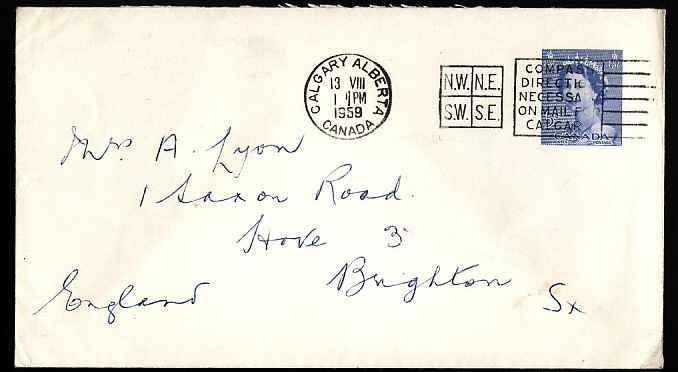 CALGARY ALBERTA
13 VIII
1 PM
1959
CANADA
N.W. N.E.
S.W. S.E.
COMPASS
DIRECTIO
NECESSA
ON MAIL F
CALGAR
CANADA
POSTAGE
Mrs A. Lyon
1 Saxon Road.
Hove 3
Brighton Sx
England